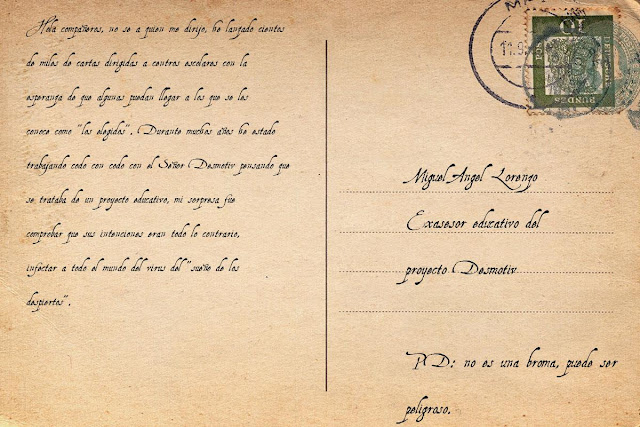 Hola compañeros, no se a quien me dirijo, he lanzado cientos
de miles de cartas dirigidas a centros escolares con la
esperanza de que algunas puedan llegar a los que se les
conoce como "los elegidos". Durante muchos años he estado
trabajando codo con codo con el Señor Desmotiv pensando que
se trataba de un proyecto educativo, mi sorpresa fue
comprobar que sus intenciones eran todo lo contrario,
infectar a todo el mundo del virus del "sueño de los
despiertos".
10
11.9.
Miguel Angel Lorenzo
Exasesor educativo del
proyecto Desmotiv
PD: no es una broma, puede ser
peligroso.